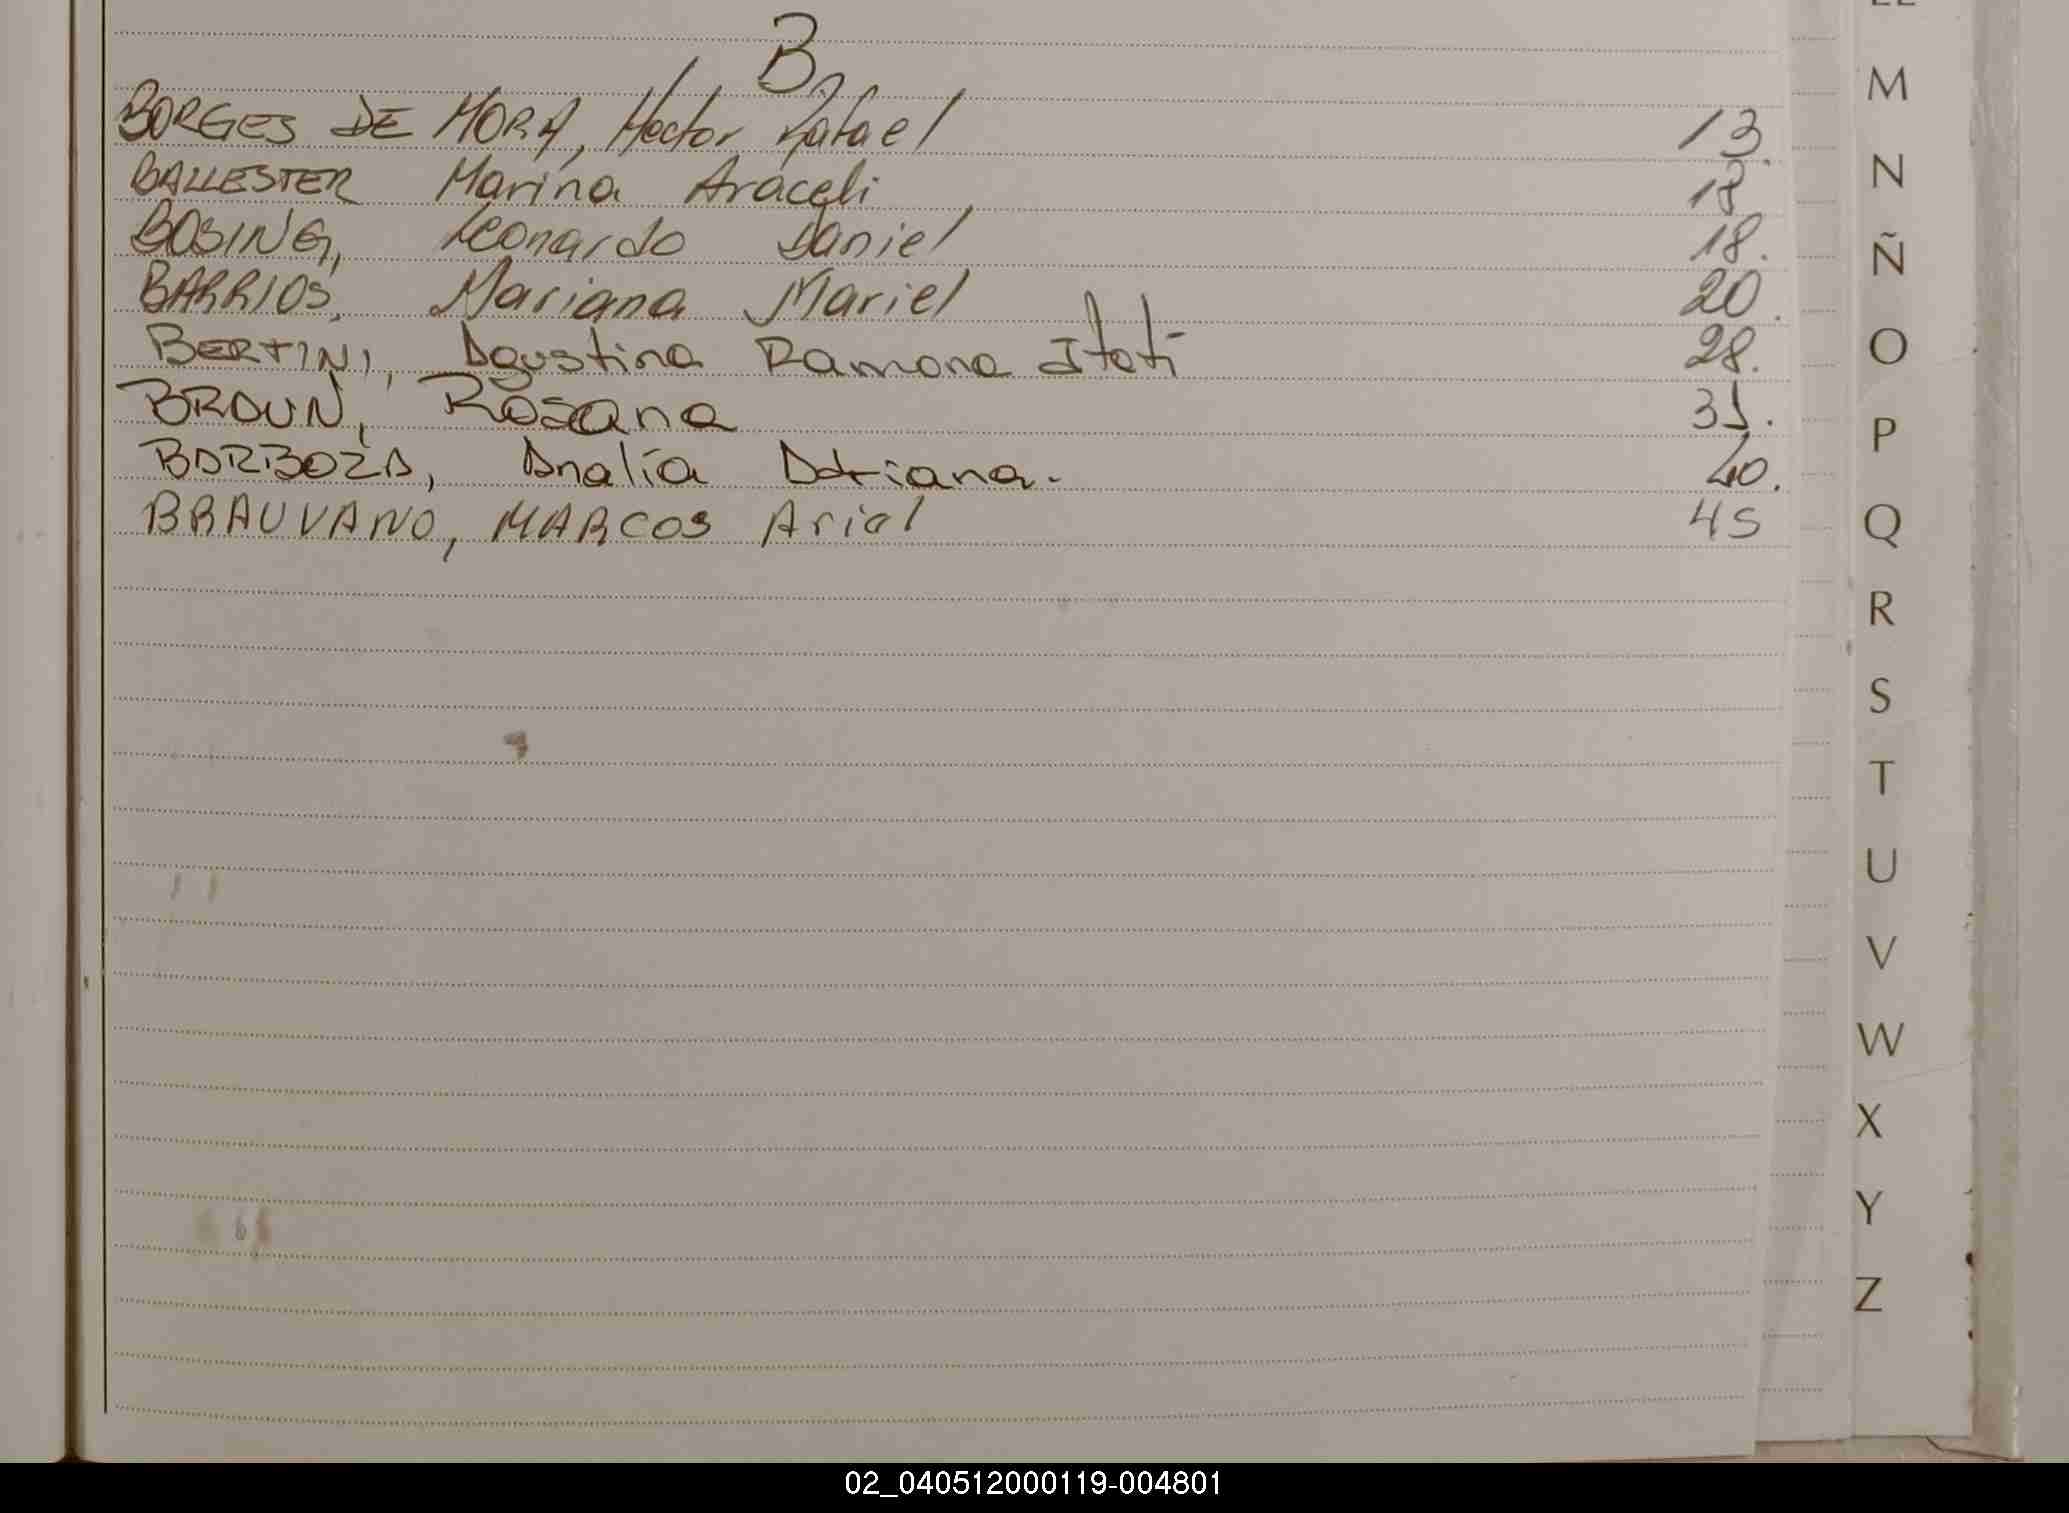 B
BORGES DE MORA, Hector Rafael 13.
BALLESTER Marina Araceli 18
BOSING, Leonardo Daniel 18.
BARRIOS. Mariana Mariel 20.
BERTINI, Agustina Ramona Itatí 28.
BRAUN, Rosana
BARBOZA, Analía Adriana. 40.
BRAUVANO, MARCOS Ariel 45
M
N
Ñ
O
P
Q
R
S
T
U
V
W
X
Y
Z
02_040512000119-004801